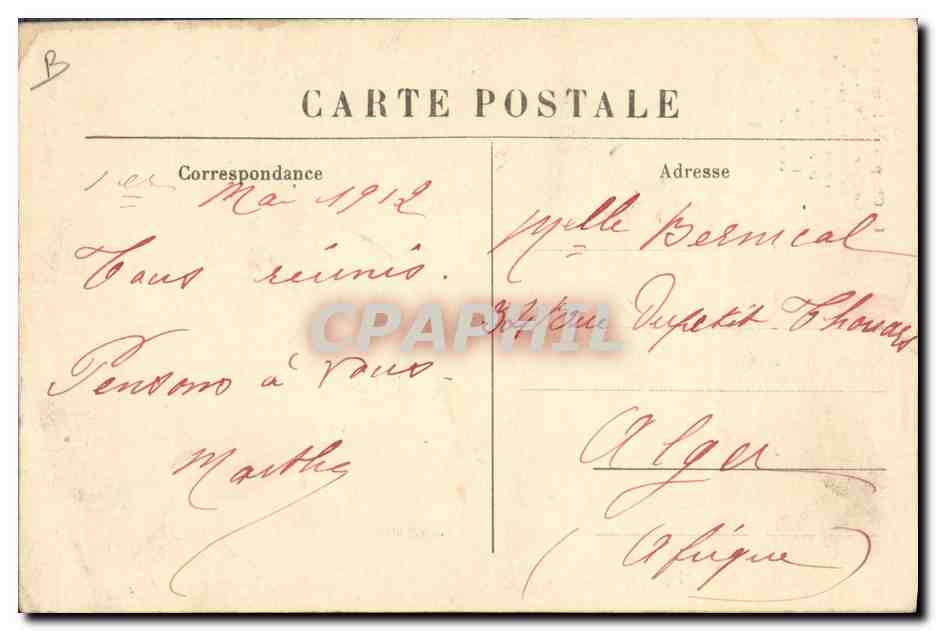 B
CARTE POSTALE
Correspondance
1er Mai 1912
Tous réunis.
Pensons à vous.
Marthe
Adresse
Melle Bernical
34 rue Dupetit-Thouars
Alger
(Afrique)
CPAPHIL